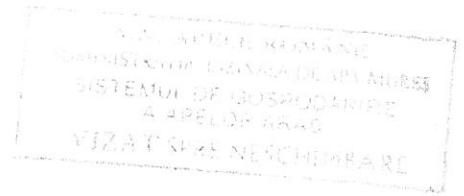 A.N. APELE ROMÂNE
ADMINISTRAȚIA BAZINALĂ DE APĂ MUREȘ
SISTEMUL DE GOSPODĂRIRE
A APELOR ARAD
VIZAT SPRE NESCHIMBARE